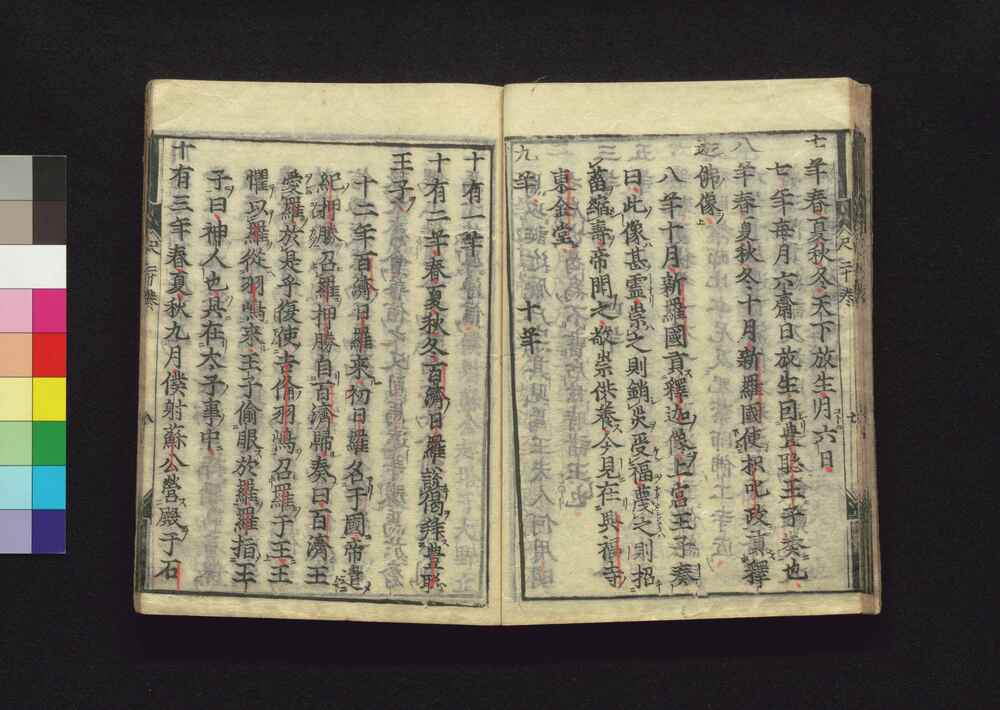 七年春夏秋冬天下放生月六日
七年每月六齋日放生因豊聡王子奏也
八年春夏秋冬十月新羅國使枳叱政貢釋
迦佛像
八年十月新羅國貢釋迦像上宮王子奏
曰此像甚靈崇之則銷災受福蔑之則招
菑縮壽帝聞之敬崇供養今見在興福寺
東金堂
九年 十年
十有一年
十有二年春夏秋冬百濟日羅說偈拜豊聡
王子
十二年百濟日羅來初日羅名于國帝遣
紀押勝召羅押勝自百濟歸奏曰百濟王
愛羅於是乎復使吉俻羽嶋召羅于王王
懼以羅從羽嶋來王子偷眼於羅羅指王
子曰神人也其在太子事中
十有三年春夏秋九月僕射蘇公營殿于石